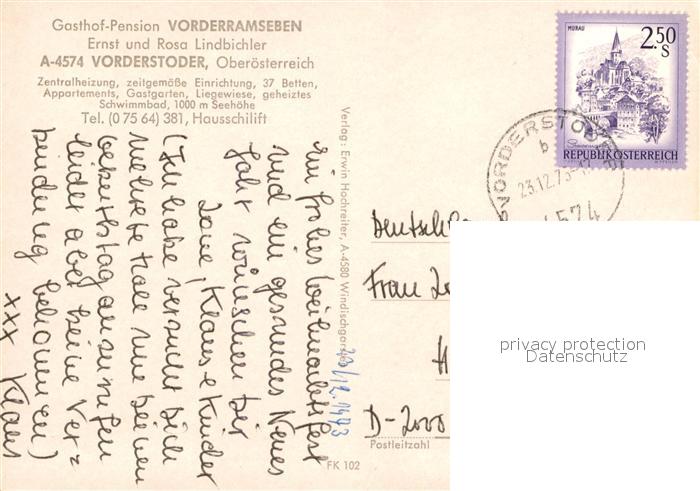 Gasthof-Pension VORDERRAMSEBEN
Ernst und Rosa Lindbichler
A-4574 VORDERSTODER, Oberösterreich
Zentralheizung, zeitgemäße Einrichtung, 37 Betten,
Appartements, Gastgarten, Liegewiese, geheiztes
Schwimmbad, 1000 m Seehöhe
Tel. (0 75 64) 381, Hausschilift
Ein frohes Weihnachtsfest
und ein gesundes Neues
Jahr wünschen Dir
Klaus & Kinder
(Ich habe versucht Dich
mehrere Male an deinem
Geburtstag anzurufen
leider aber keine Ver=
bindung bekommen)
xxx Klaus
Verlag: Erwin Hochreiter, A-4580 Windischgarsten
23/12.1973
FK 102
MURAU
2.50
S
REPUBLIK ÖSTERREICH
VORDERSTODER
b
23.12.73
4574
Frau
D-2000
Postleitzahl
privacy protection
Datenschutz